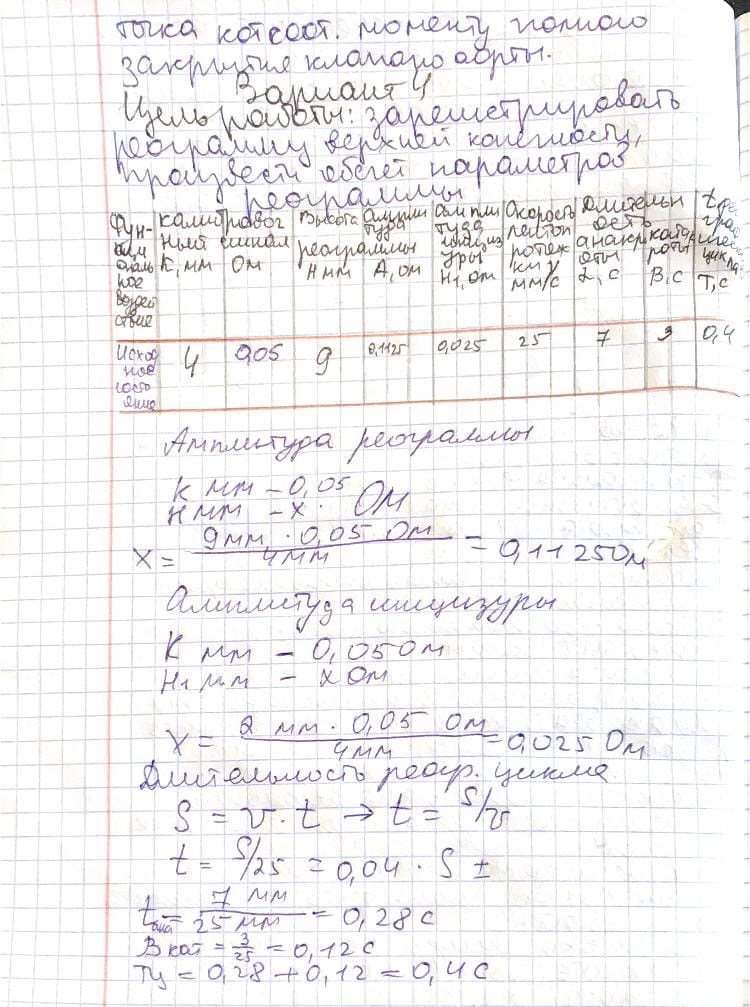 точка кот соот. моменту полного
закрытия клапано аорты.
Вариант 4
Цель работы: зарегистрировать
реограмму верхней конечности,
произвести обсчет параметров
реограммы
Функциональное воздействие
калибровочный сигнал
K, мм
Ом
Высота реограммы
H мм
Амплитуда
A, ом
Амплитуда инцизуры
H1, Ом
Скорость лентопротяжки V
мм/с
Длительность
анакроты
α, с
катакроты
B, с
t реографического цикла
T, с
Исходное состояние
4
0,05
9
0,1125
0,025
25
7
3
0,4
Амплитуда реограммы
K мм – 0,05
H мм – x Ом
X = 9мм · 0,05 Ом / 4мм = 0,1125Ом
Амплитуда инцизуры
K мм – 0,05Ом
H1 мм – x Ом
X = 2 мм · 0,05 Ом / 4мм = 0,025 Ом
Длительность реогр. цикла
S = v · t → t = S/v
t = S/25 = 0,04 · S ±
tана = 7 мм / 25 мм = 0,28 с
B кат = 3/25 = 0,12с
Tц = 0,28 + 0,12 = 0,4с